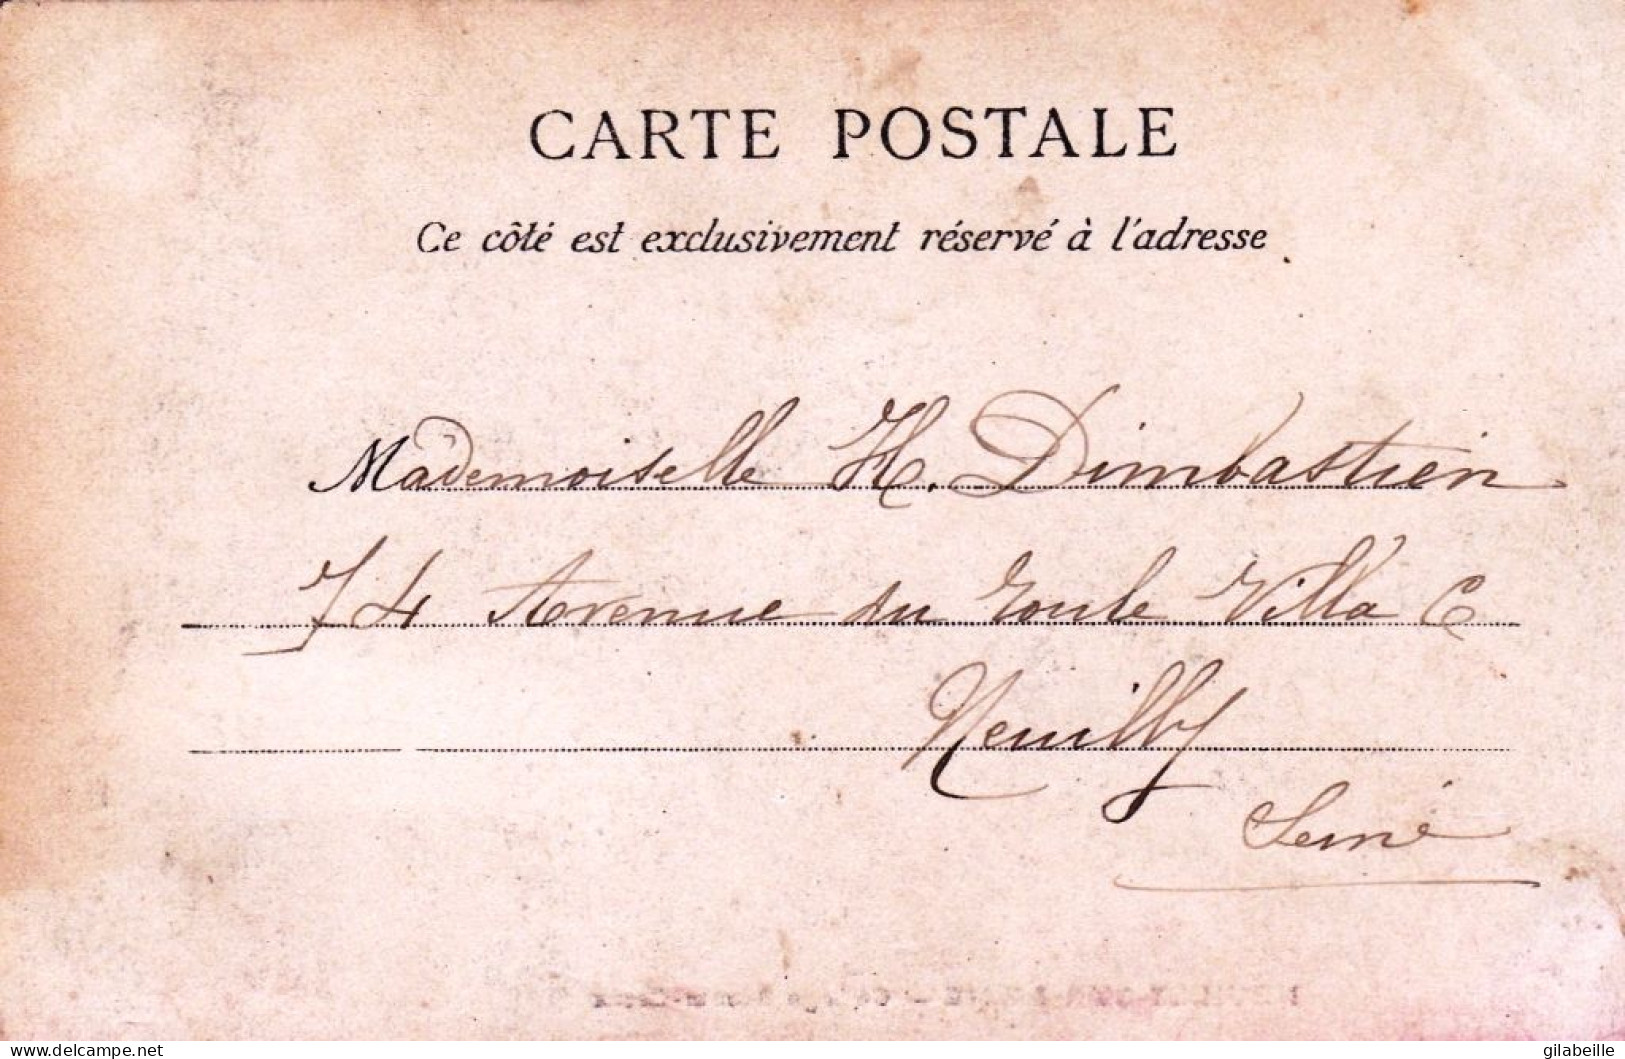 CARTE POSTALE
Ce côté est exclusivement réservé à l'adresse
Mademoiselle H. Dimbastien
74 Avenue du Roule Villa C
Neuilly
Seine
www.delcampe.net
gilabeille